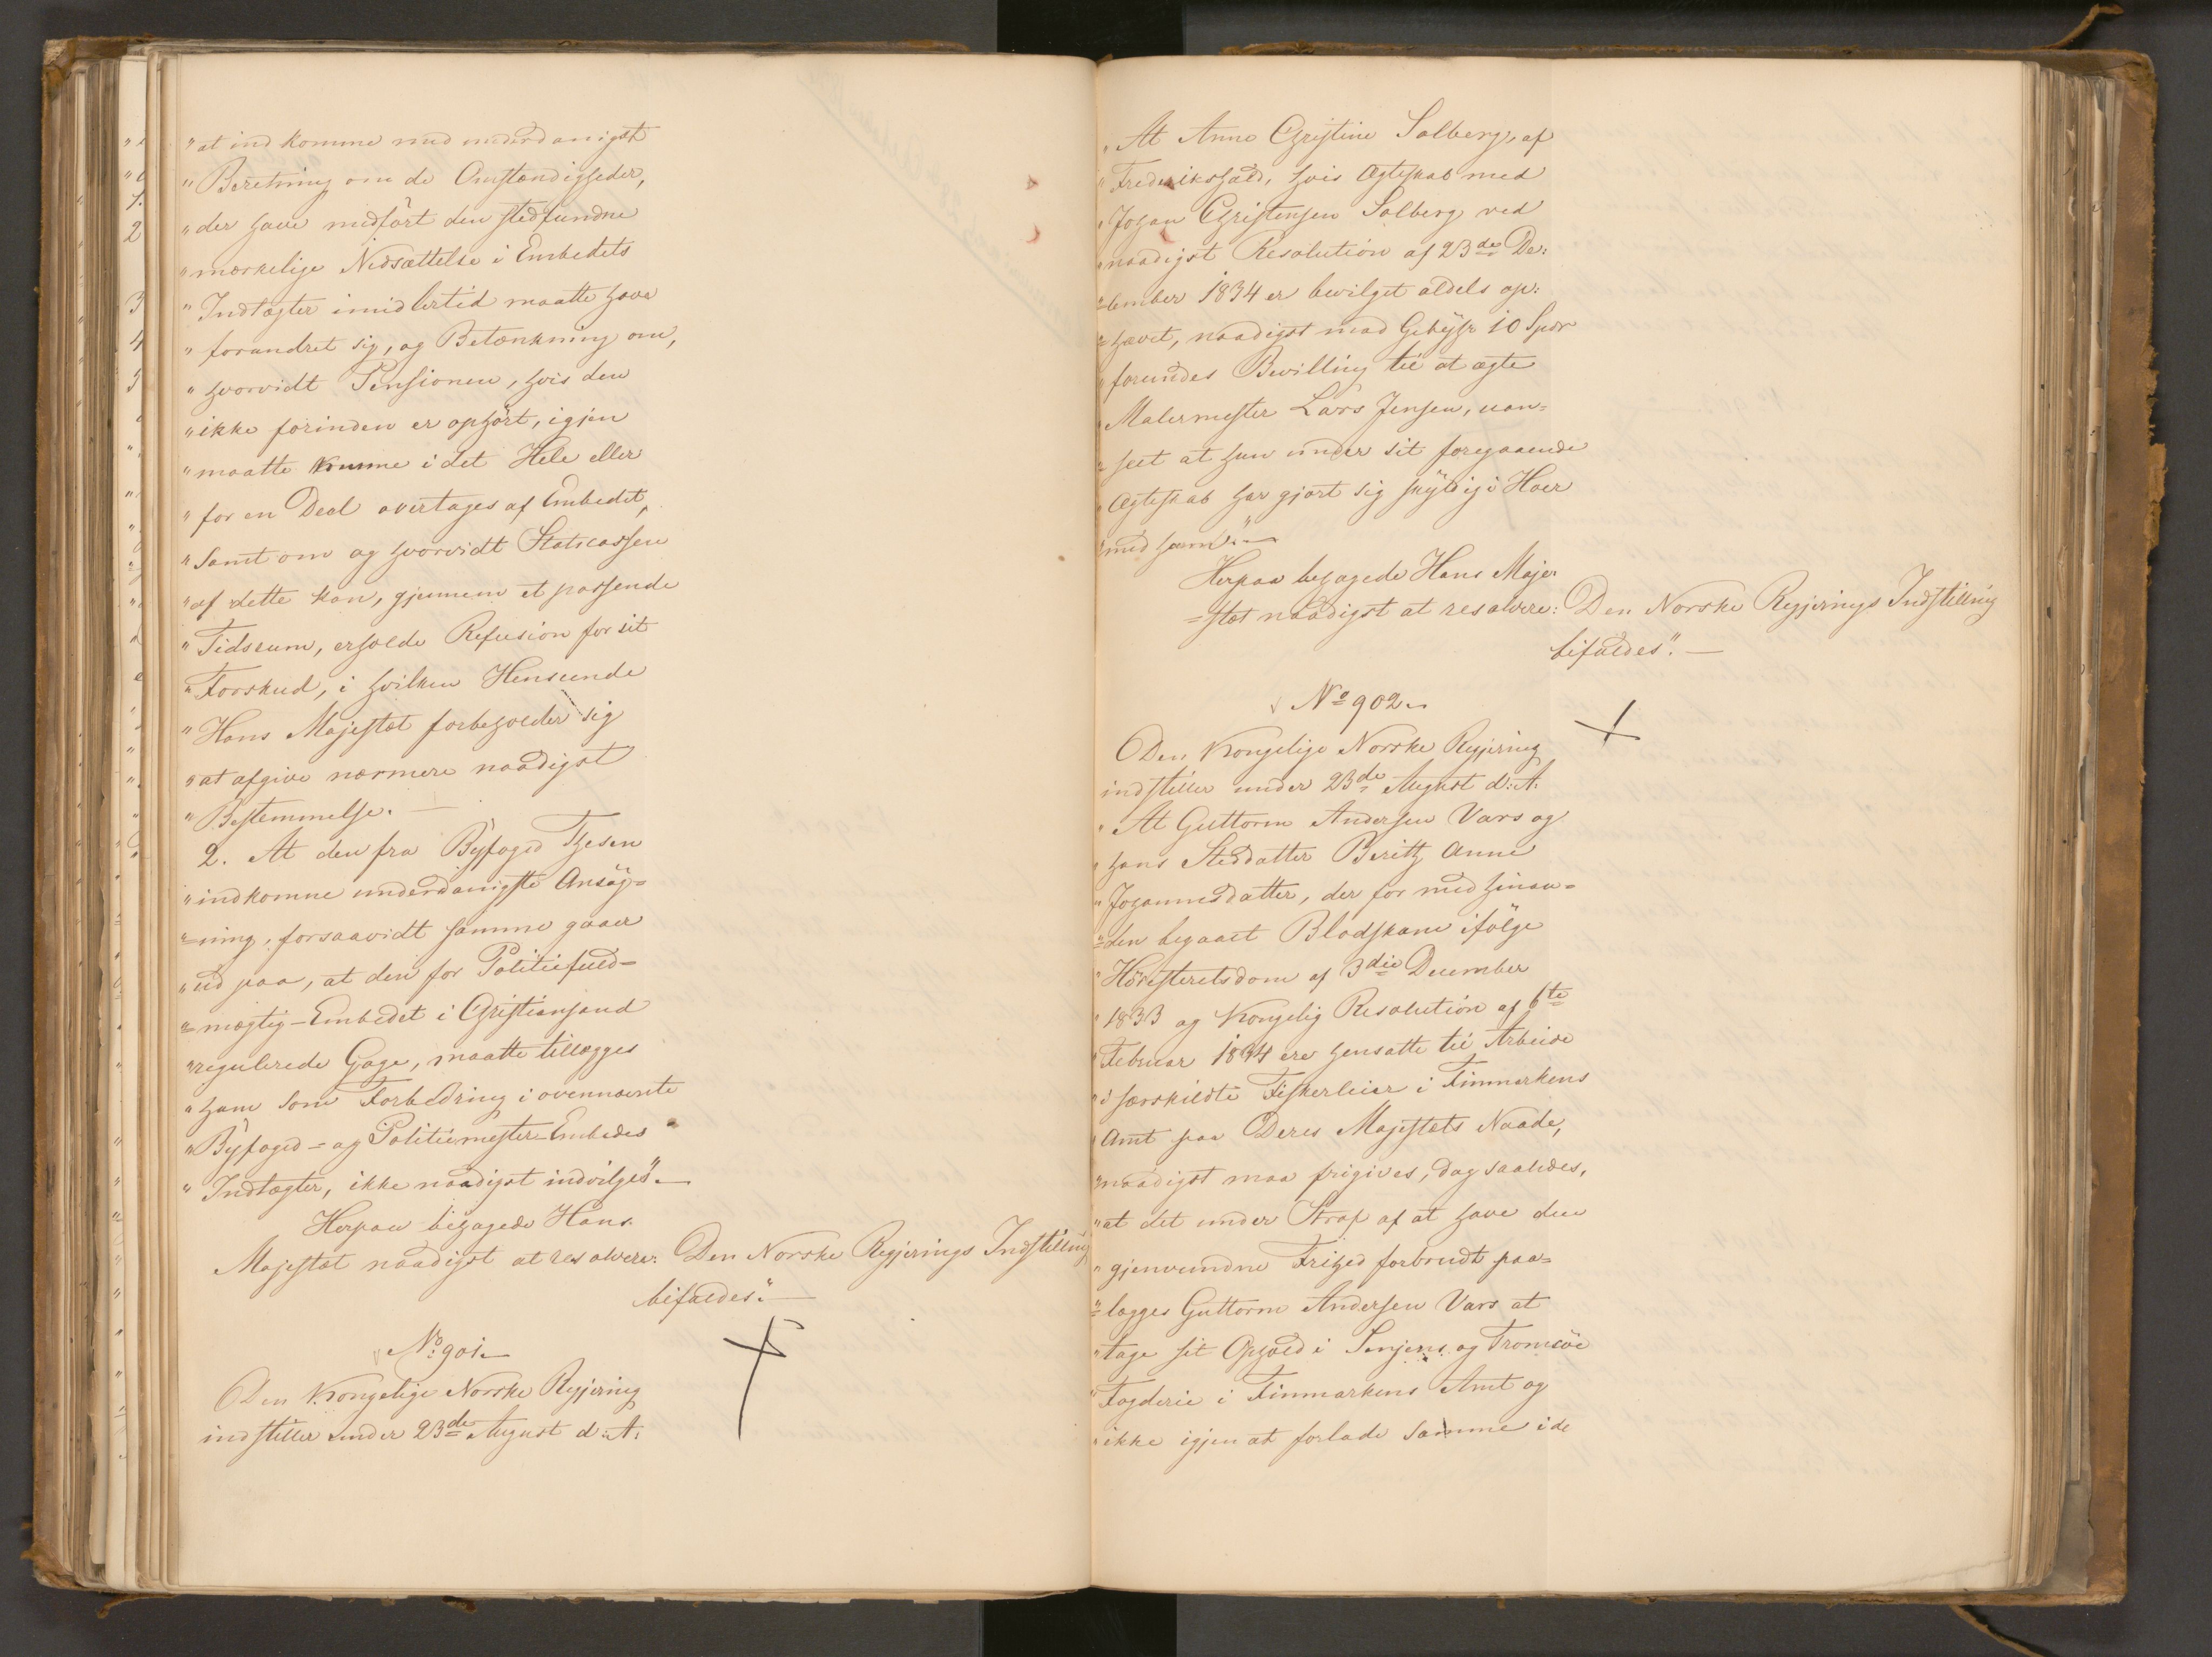 "at ind komme med underdanigst
"Beretning om de Omstændigheder,
"der have medført den stedfundne
"mærkelige Nedsættelse i Embedets
"Indtægter imidlertid maatte have
"forandret sig, og Betænkning om,
"hvorvidt Pensionen, hvis den
"ikke forinden er ophørt, igjen
"maatte kunne i det Hele eller
"for en Deel overtages af Embedet,
"samt om og hvorvidt Statscassen
"af dette kan, gjennem et passende
"Tidsrum, erholde Refusion for sit
"Forskud, i hvilken Henseende
"Hans Majestæt forbeholder sig
"at afgive nærmere naadigst
"Bestemmelse. —
2. At den fra Byfoged Thesen
"indkomne underdanigste Ansøg=
"=ning, forsaavidt samme gaaer
"ud paa, at den for Politiefuld=
"=mægtig-Embedet i Christiansand
"regulerede Gage, maatte tillægges
"ham som Forbedring i ovennævnte
"Byfoged- og Politiemester-Embedes
"Indtægter, ikke naadigst indvilges". —
Herpaa behagede Hans
Majestæt naadigst at resolvere: Den Norske Regjerings Indstilling
bifaldes". —
No. 901. —
Den Kongelige Norske Regjering
indstiller under 23de August d: A:
"At Anne Christine Solberg, af
"Frederikshald, hvis Ægteskab med
"Johan Christensen Solberg ved
"naadigst Resolution af 23de De:
"=cember 1834 er bevilget aldeles op:
"=hævet, naadigst mod Gebyhr 10 Spdr
"forundes Bevilling til at ægte
"Malermester Lars Jensen, uan=
"=seet at hun under sit foregaaende
"Ægteskab har gjort sig skyldig i Hoer
"med ham". —
Herpaa behagede Hans Maje:
=stæt naadigst at resolvere: Den Norske Regjerings Indstilling
bifaldes". —
No 902.
Den Kongelige Norske Regjering
indstiller under 23de August d: A:
"At Guttorm Andersen Vars og
"hans Steddatter Berith Anne
"Johannesdatter, der for med hinan=
"=den begaaet Blodskam ifølge
"Høiesteretsdom af 3die December
"1833 og Kongelig Resolution af 6te
"Februar 1834 ere hensatte til Arbeide
"i særskildte Fiskerleier i Finmarkens
"Amt paa Deres Majestæts Naade,
"naadigst maa frigives, dog saaledes,
"at det under Straf af at have den
"gjenvundne Frihed forbrudt paa=
"=lægges Guttorm Andersen Vars at
"tage sit Ophold i Senjens og Tromsøe
"Fogderie i Finmarkens Amt og
"ikke igjen at forlade samme i de